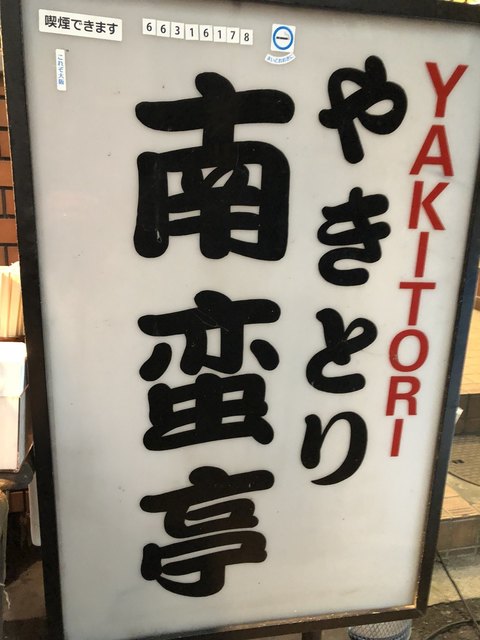 喫煙できます
66316178
これぞ大阪
YAKITORI
やきとり
南蛮亭